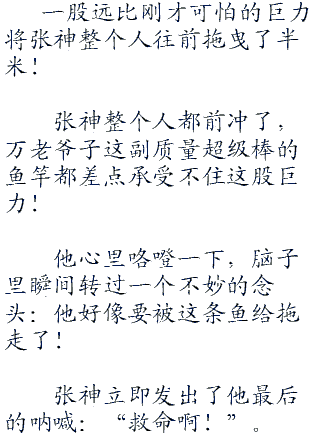 一股远比刚才可怕的巨力
将张神整个人往前拖曳了半
米！
张神整个人都前冲了，
万老爷子这副质量超级棒的
鱼竿都差点承受不住这股巨
力！
他心里咯噔一下，脑子
里瞬间转过一个不妙的念
头：他好像要被这条鱼给拖
走了！
张神立即发出了他最后
的呐喊：“救命啊！”。